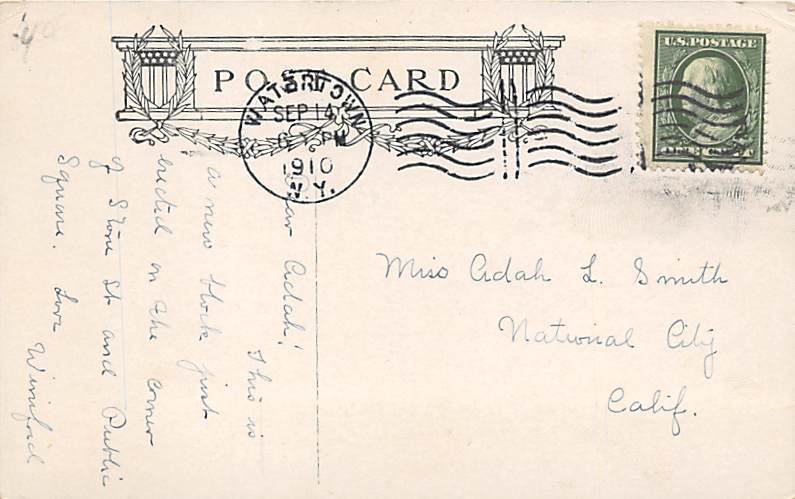 POST CARD
WATERTOWN
SEP 14
6 PM
1910
N.Y.
U.S. POSTAGE
Dear Adah!
This is
a new block just
erected on the corner
of Stone St and Public
Square. Love
Winifred
Miss Adah L. Smith
National City
Calif.